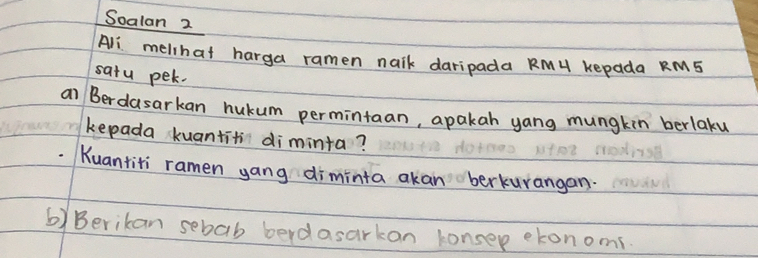 Soalan 2
Ali melihat harga ramen naik daripada RM4 kepada RM5
satu pek.
a) Berdasarkan hukum permintaan, apakah yang mungkin berlaku
kepada kuantiti diminta?
. Kuantiti ramen yang diminta akan berkurangan.
b) Berikan sebab berdasarkan konsep ekonomi.